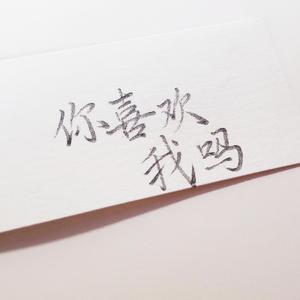 你喜欢
我吗